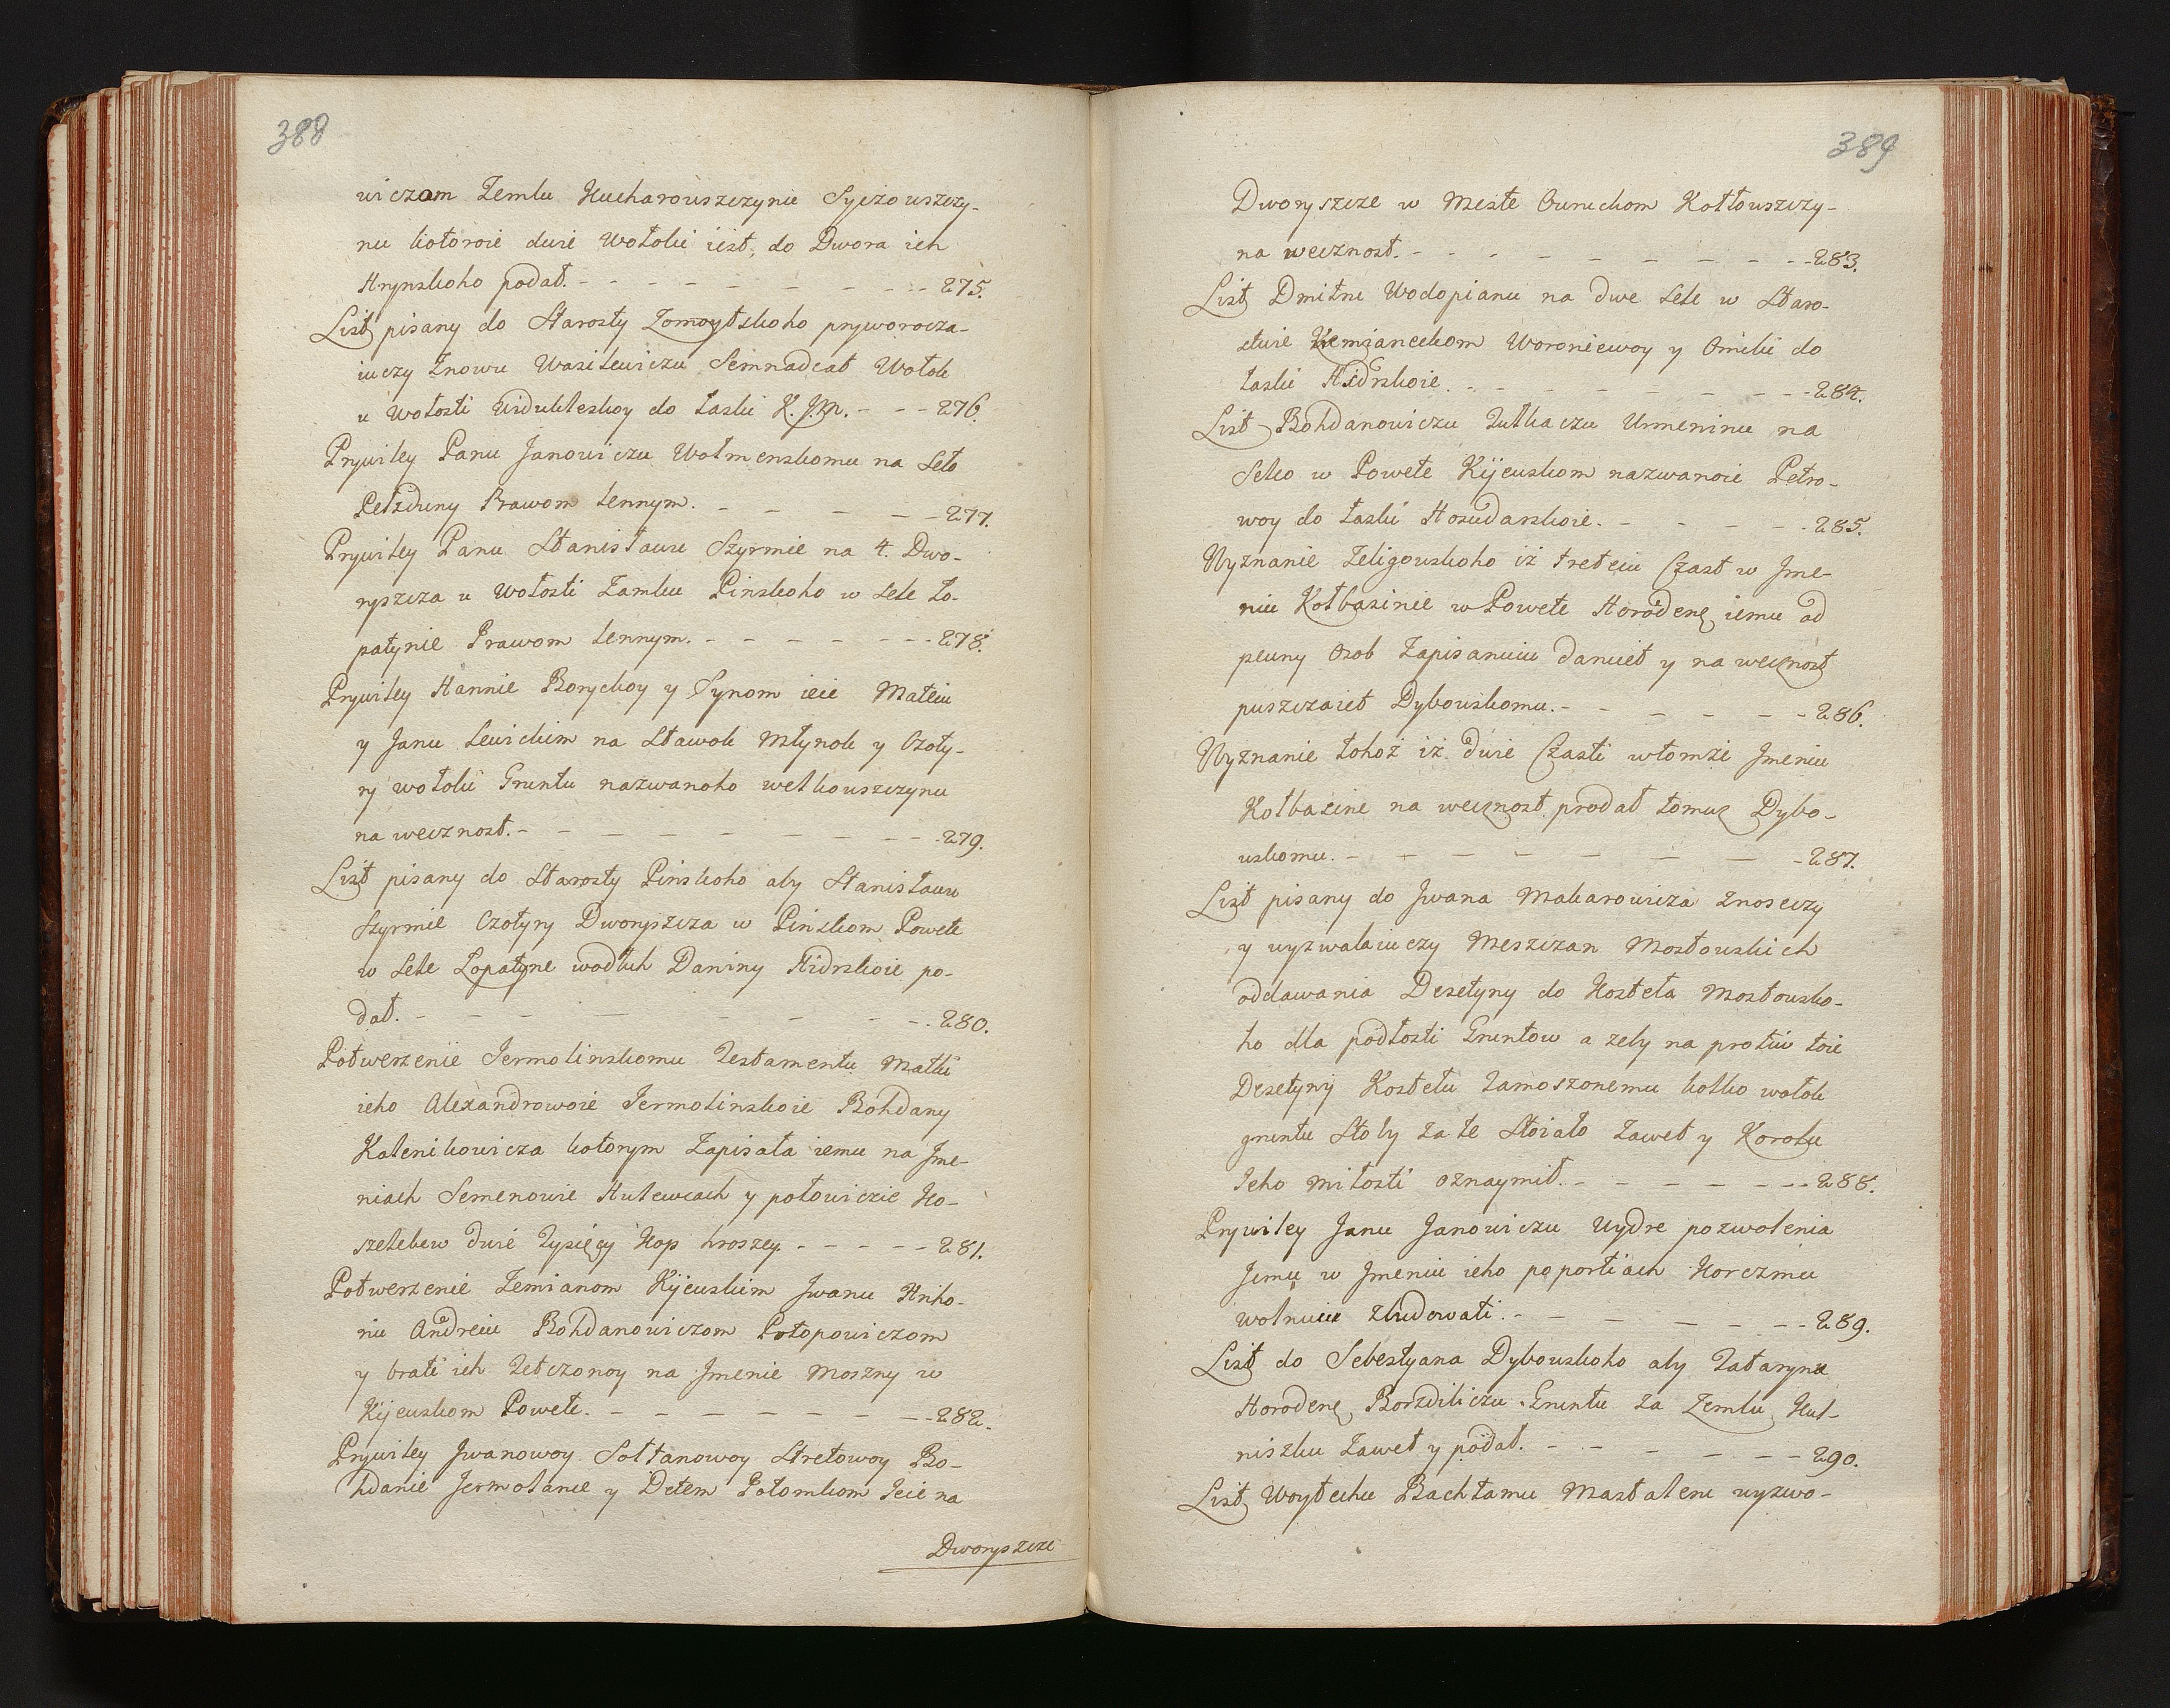 388
wiczom Zemlu Kucharouszczynu Syczouszczy-
nu kotoroie dwie Wołoki iest, do Dwora ich
Hrynskoho podał. - - - - - - - - - 275.
List pisany do Starosty Zomoytskoho prywarocza-
iuczy Znowu Wasilewiczu Semnadcat Wołok
u Wołosti Widukleskoy do łaski K. J. M. - - - 276.
Prywiley Panu Janowiczu Wołmenskomu na Seło
Pelzduny Prawom Lennym. - - - - - 277.
Prywiley Panu Stanisławu Szyrmie na 4. Dwo-
ryszcza u Wołosti Zamku Pinskoho w Sele Ło-
patynie Prawom Lennym. - - - - - - - 278.
Prywiley Hannie Boryckoy y Synom ieie Mateiu
y Janu Lewickim na Stawok Młynok y Czoty-
ry wołoki Gruntu nazwanoho welkouszczynu
na wecznost. - - - - - - - - - 279.
List pisany do Starosty Pinskoho aby Stanisławu
Szyrmie Czotyry Dworyszcza w Pinskom Powete
w Sele Łopatyne wodłuh Daniny Hidrskoie po-
dał. - - - - - - - - 280.
Potwerzenie Jermolinskomu Testamentu Matki
ieho Alexandrowoie Jermolinskoie Bohdany
Kalenikowicza kotorym Zapisała iemu na Jme-
niach Semenowie Hulewcach y połowiczie Ko-
szelebew dwie Tysięcy Kop hroszey. - - - - - 281.
Potwerzenie Zemianom Kijeuskim Jwanu Hriho-
riu Andreiu Bohdanowiczom Potopowiczom
y brati ich Zetczonoy na Jmenie Moszny w
Kijeuskom Powete. - - - - - - - - 282.
Prywiley Jwanowoy Sołtanowoy Stretowoy Bo-
hdanie Jermolance y Detem Potomkom Jeie na
Dworyszcze
389
Dworyszcze w Meste Owruckom Kotłouszczy-
na wecznost. - - - - - - - - - - 283.
List Dmitru Wodopianu na dwe Sele w Staro-
stwie Kremianeckom Woroniewoy y Omiki do
łaski Hidrskoie. - - - - - - - - - 284.
List Bohdanowiczu Tutkaczu Urmeninu na
Selco w Powete Kijeuskom nazwanoie Petro-
woy do łaski Hosudarskoie. - - - - - 285.
Wyznanie Zeligouskoho iż tretciu Czast w Jme-
niu Kołbasinie w Powete Horodenę iemu od
pewny Osob Zapisanuiu daruiet y na wecznost
puszczaiet Dybouskomu. - - - - - - 286.
Wyznanie tohoż iż dwie Czasti w tomże Jmeniu
Kołbasine na wecznost prodał tomuż Dybo-
uskomu. - - - - - - - - 287.
List pisany do Jwana Makarowicza Znoseczy
y wyzwalaiuczy Meszczan Mostouskich
oddawania Desetyny do Kosteła Mostousko-
ho dla podłosti Gruntow a żeby na protiw toie
Desetyny Kostełu Zamoszonemu kolko wołok
gruntu Stoły za te Stoiało Zaweł y Korolu
Jeho Miłosti oznaymił. - - - - - - - 288.
Prywiley Janu Janowiczu Wydre pozwolenia
Jemu w Jmeniu ieho poportiach Korczmu
wolnuiu zbudowati. - - - - - - - 289.
List do Sebestyana Dybouskoho aby Tataryna
Horodenę Borzdiliczu Gruntu za Zemlu Kul-
niszku Zaweł y podał. - - - - - - 290.
List Woytechu Bachtamu Mastaleru wyzwo-